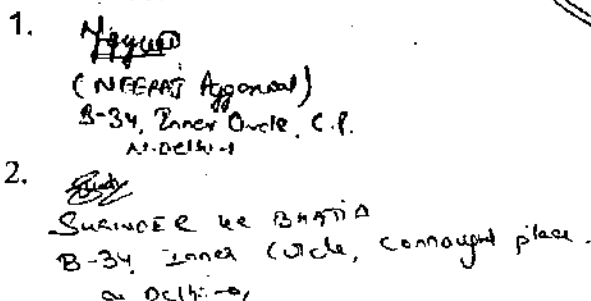 1.
(NEERAJ Aggarwal)
B-34, Inner Circle, C.P.
N.Delhi-1
2.
SURINDER Kr BHATIA
B-34, Inner Circle, Connaught place.
Delhi-1